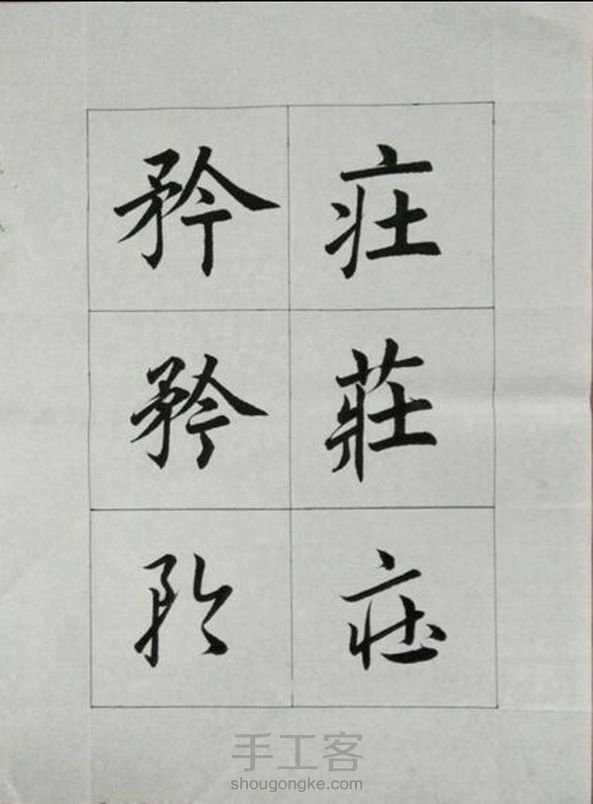 莊莊莊
矜矜矜
手工客
shougongke.com